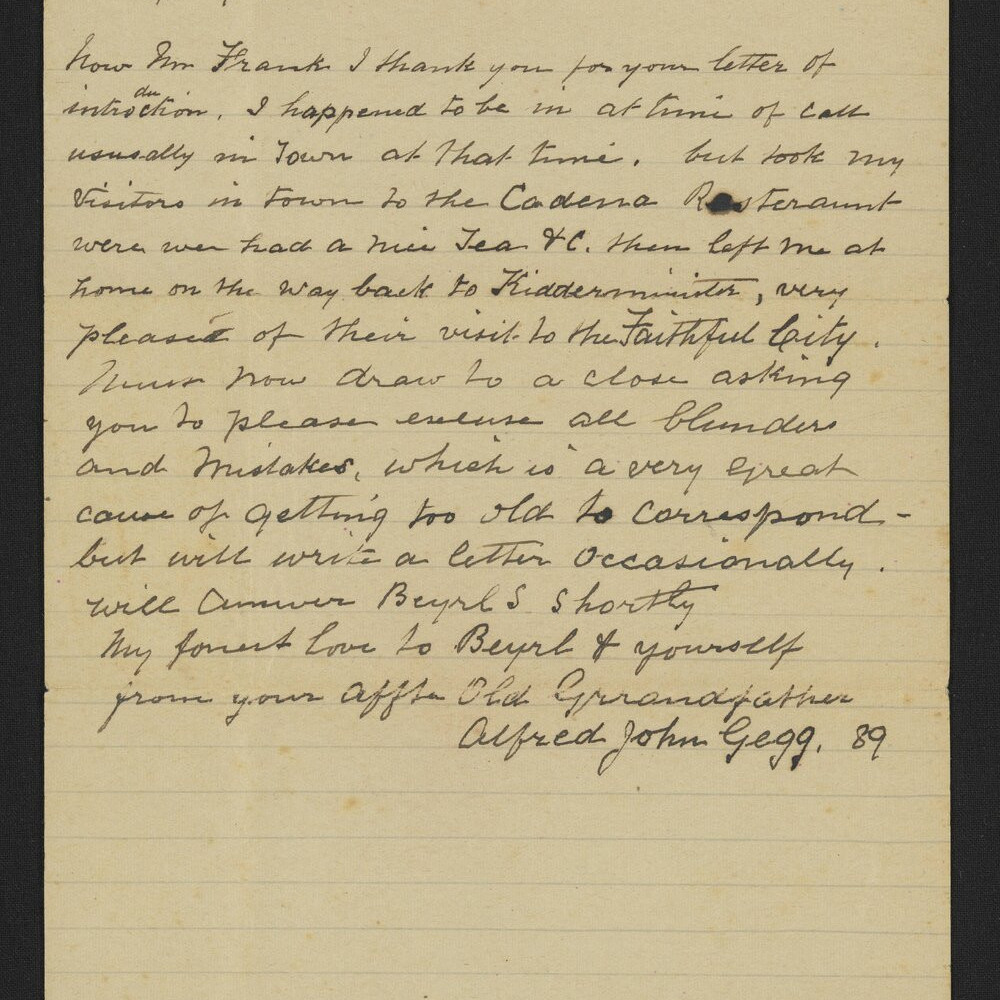 Now Mr Frank I thank you for your letter of
introduction. I happened to be in at time of call
ususally in Town at that time. but took my
Visitors in town to the Cadena Resteraunt
were wee had a nice Tea &C. then left me at
home on the way back to Kidderminister, very
pleased of their visit to the Faithful City.
Must now draw to a close asking
you to please excuse all blunders
and Mistakes, which is a very great
cause of getting too old to correspond -
but will write a letter Occasionally.
will Answer Beyrl S Shortly
My fonest love to Beyrl & yourself
from your Affte Old Grrandfather
Alfred John Gegg. 89